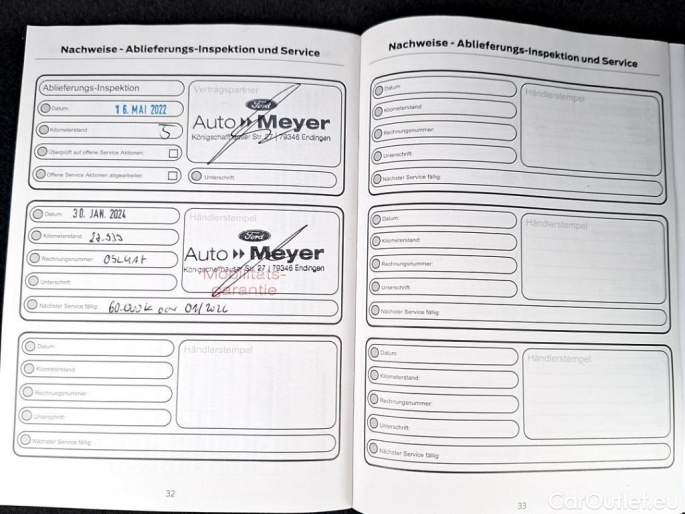 Nachweise - Ablieferungs-Inspektion und Service
Ablieferungs-Inspektion
Vertragspartner
Datum: 16. MAI 2022
Kilometerstand: 5
Überprüft auf offene Service Aktionen:
Offene Service Aktionen abgearbeitet:
Ford
Auto Meyer
Königschaffhauser Str. 27 | 79346 Endingen
Unterschrift:
Datum: 30. JAN. 2024
Kilometerstand:
Rechnungsnummer:
Unterschrift:
Nächster Service fällig: 60.000 01/2026
Händlerstempel
Ford
Auto Meyer
Königschaffhauser Str. 27 | 79346 Endingen
Mobilitäts-
garantie
Datum:
Kilometerstand:
Rechnungsnummer:
Unterschrift:
Nächster Service fällig:
Händlerstempel
32
Nachweise - Ablieferungs-Inspektion und Service
Datum:
Kilometerstand:
Rechnungsnummer:
Unterschrift:
Nächster Service fällig:
Händlerstempel
Datum:
Kilometerstand:
Rechnungsnummer:
Unterschrift:
Nächster Service fällig:
Händlerstempel
Datum:
Kilometerstand:
Rechnungsnummer:
Unterschrift:
Nächster Service fällig:
Händlerstempel
33
CarOutlet.eu